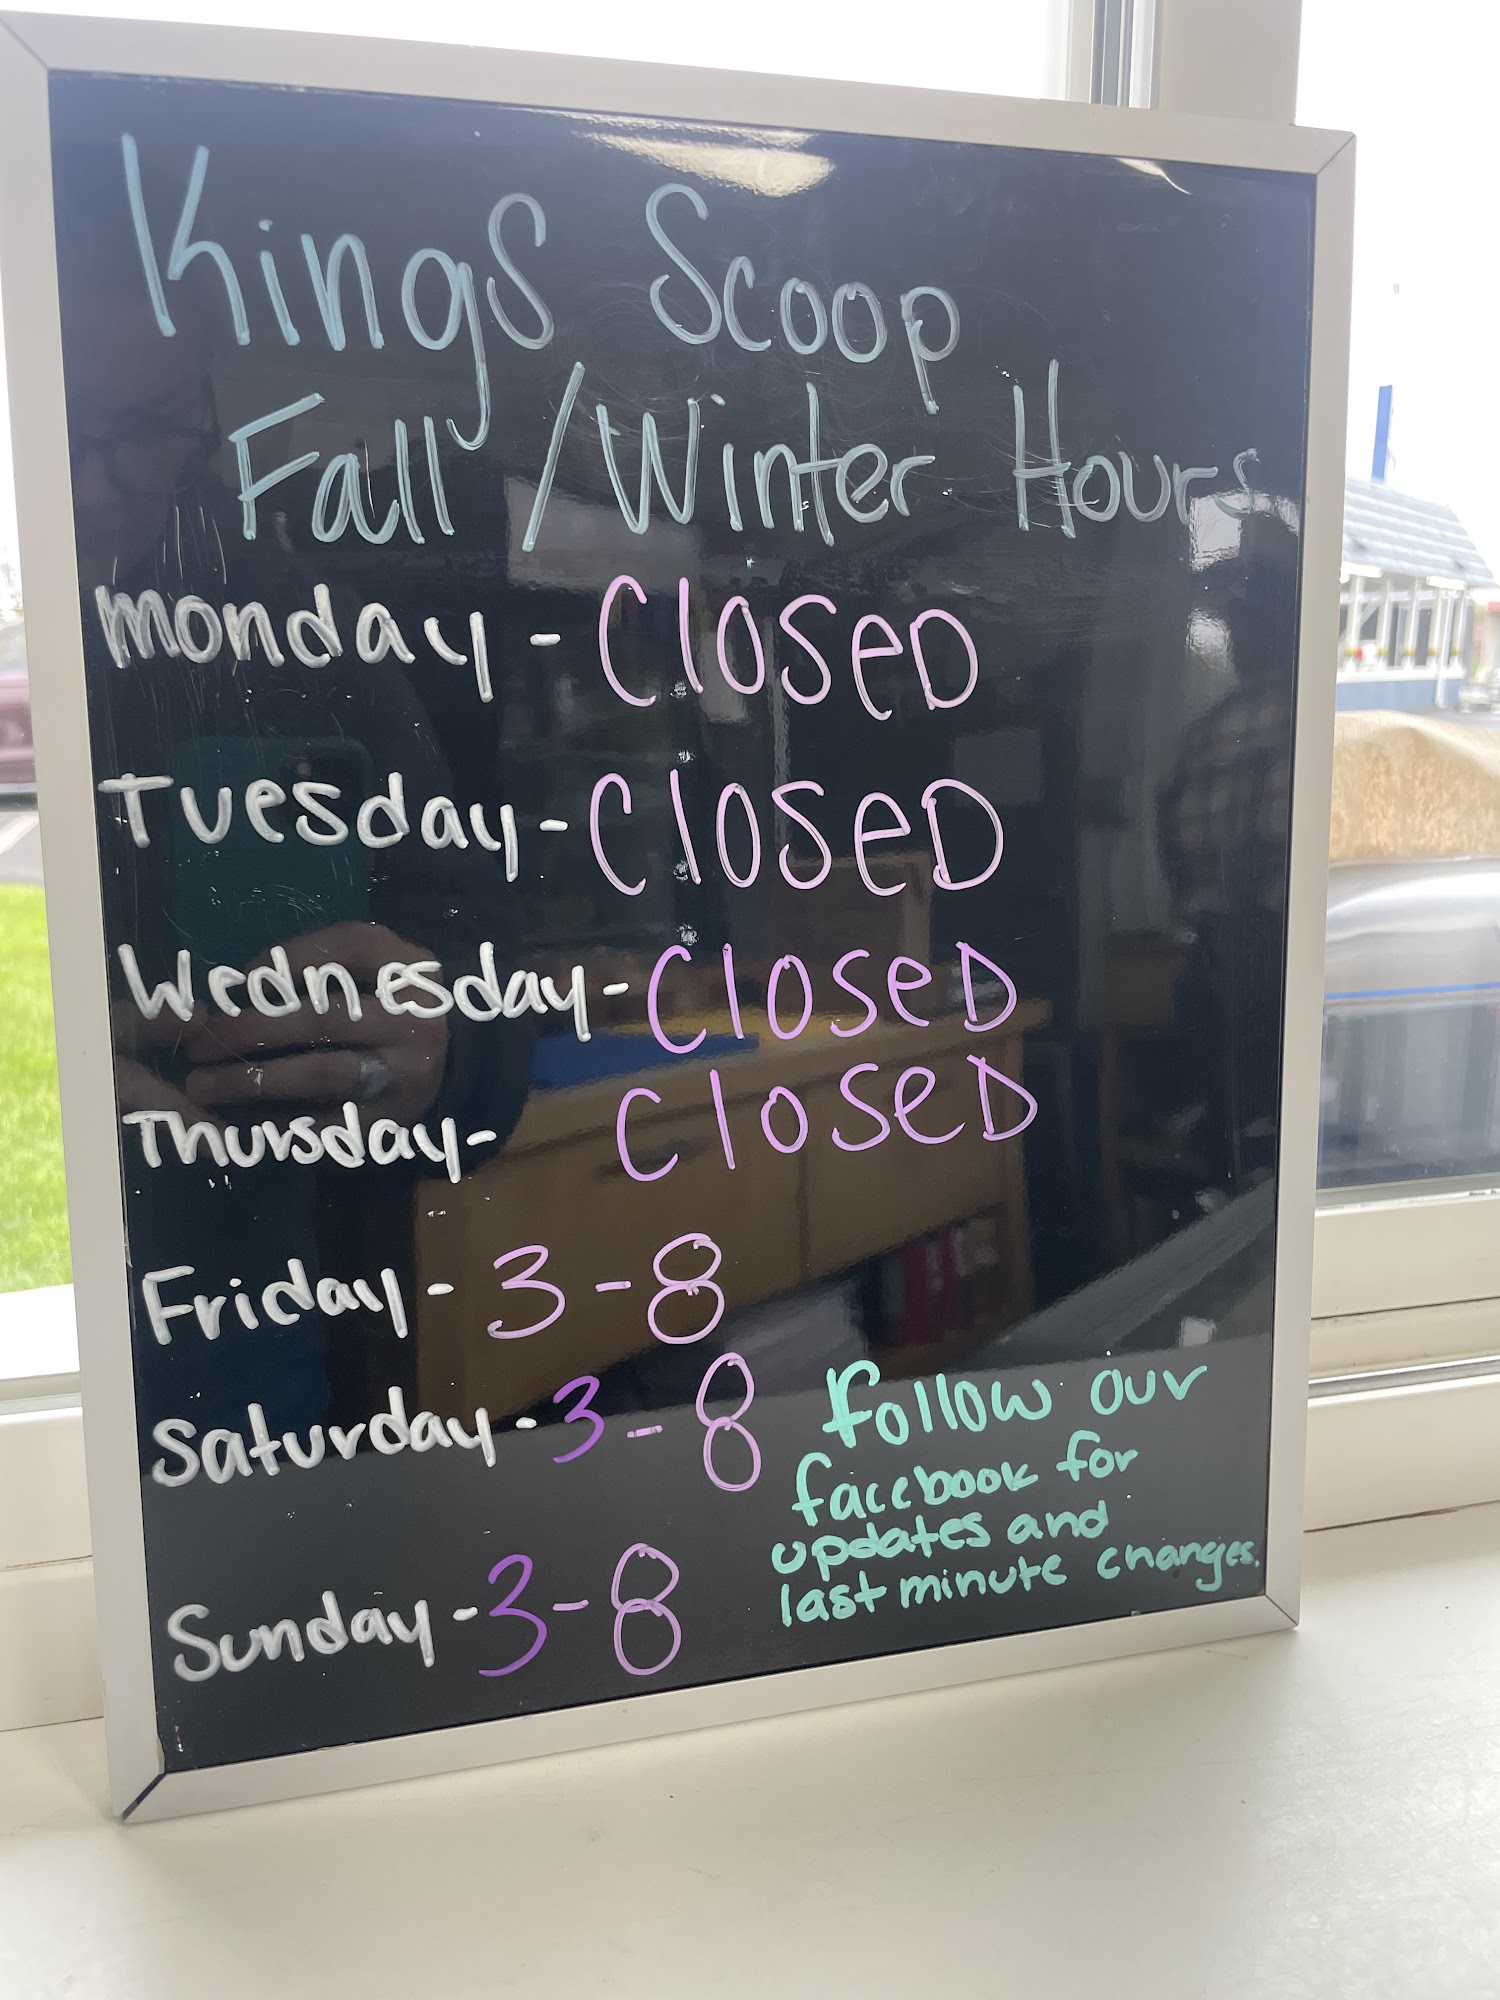 Kings Scoop
Fall/Winter Hours
Monday - Closed
Tuesday - Closed
Wednesday - Closed
Thursday - Closed
Friday - 3-8
Saturday - 3-8
Sunday - 3-8
Follow our
facebook for
updates and
last minute changes.